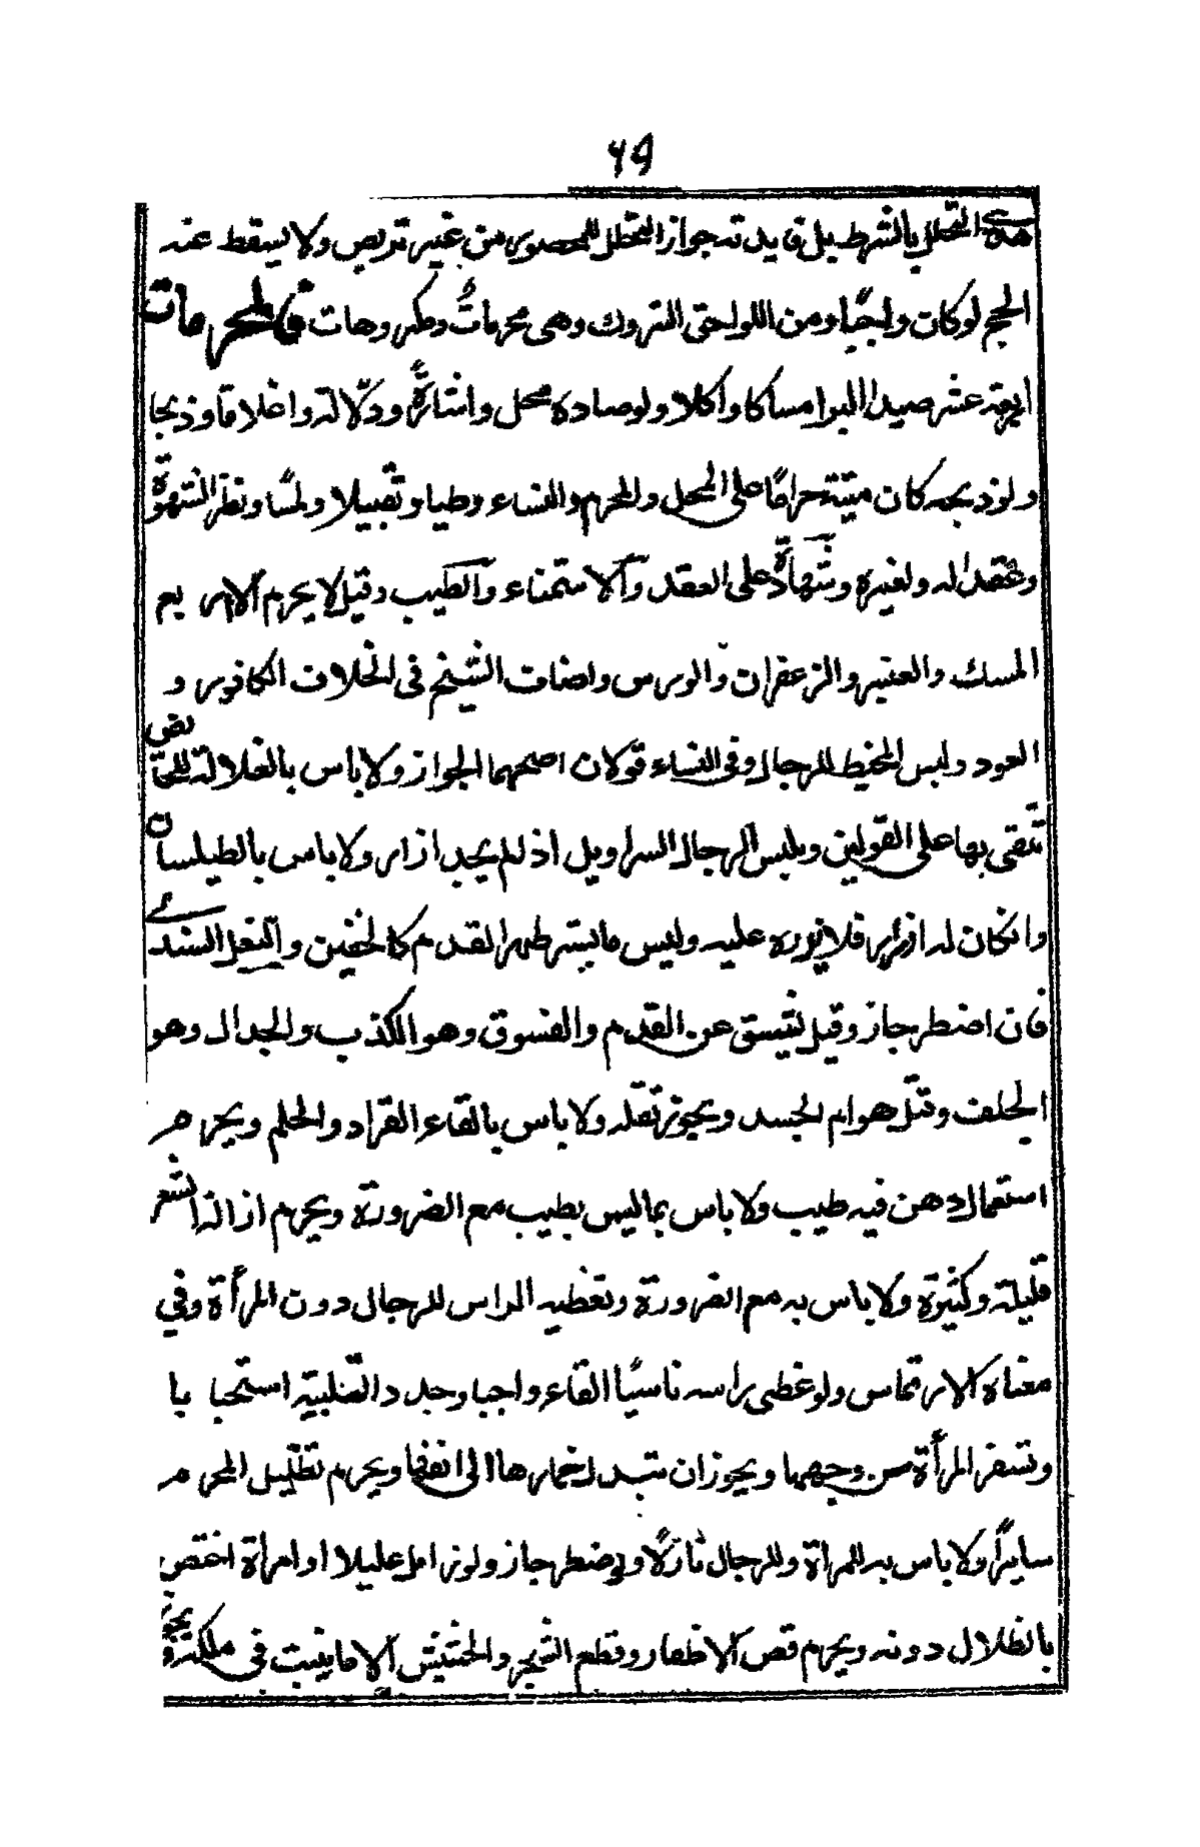 ٦٩
هدى التحلل بالشرط بل فايدته جواز التحلل للمحصور من غير تربص ولا يسقط عنه
الحج لو كان واجبًا ومن اللواحق التروك وهى محرماتٌ ومكروهات فالمحرمات
اربعة عشر صيد البر امساكا واكلا ولو صاده محل واشارةً ودلالة واغلاقا وذبحا
ولو ذبحه كان ميتة حرامًا على المحل والمحرم والنساء وطيا وتقبيلا ولمسًا ونظرا بشهوة
وعقدا له ولغيره وشهادةً على العقد والاستمناء والطيب وقيل لا يحرم الا اربع
المسك والعنبر والزعفران والورس واضاف الشيخ فى الخلاف الكافور و
العود ولبس المخيط للرجال وفى النساء قولان اصحهما الجواز ولا باس بالغلالة للحائض
تتقى بها على القولين ويلبس الرجال السراويل اذ لم يجد ازار ولا باس بالطيلسان
وانكان له ازرار فلا يزره عليه ولبس ما يستر ظهر القدم كالخفين والنعل السندى
فان اضطر جاز وقيل يشق عن القدم والفسوق وهو الكذب والجدال وهو
الحلف وقتل هوام الجسد ويجوز نقله ولا باس بالقاء القراد والحلم ويحرم
استعمال دهن فيه طيب ولا باس بما ليس بطيب مع الضرورة ويحرم ازالة الشعر
قليلة وكثيرة ولا باس به مع الضرورة وتغطيه الراس للرجال دون المرأة وفي
معناه الارتماس ولو غطى راسه ناسيًا القاء واجبا وجدد التلبية استحبابا
وتسفر المرأة عن وجهها ويجوز ان تسدل خمارها الى انفها ويحرم تظليل المحرم
سايرًا ولا باس به للمراة وللرجال نازلًا ولو ضطر جاز ولو زامل عليلا او امراة اختص
بالظلال دونه ويحرم قص الاظفار وقطع الشجر والحشيش الا ما ينبت فى ملكه ويجوز